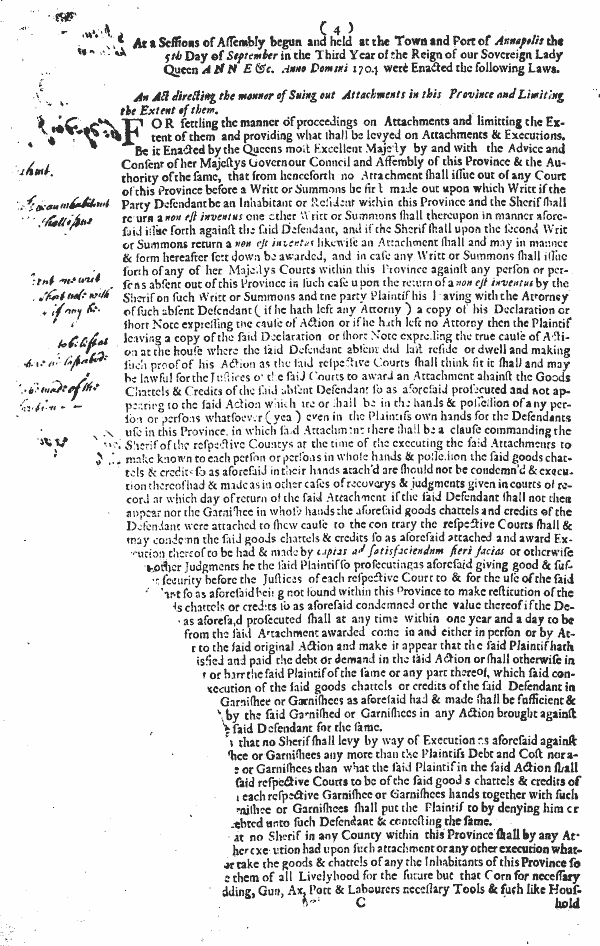 ( 4 )
At a Sessions of Assembly begun and held at the Town and Port of Annapolis the
5th Day of September in the Third Year of the Reign of our Sovereign Lady
Queen ANNE &c. Anno Domini 1704 were Enacted the following Laws.
An Act directing the manner of Suing out Attachments in this Province and Limiting
the Extent of them.
FOR settling the manner of proceedings on Attachments and limitting the Ex-
tent of them and providing what shall be levyed on Attachments & Executions.
Be it Enacted by the Queens most Excellent Majesty by and with the Advice and
Consent of her Majestys Governour Council and Assembly of this Province & the Au-
thority of the same, that from henceforth no Attachment shall issue out of any Court
of this Province before a Writt or Summons be first made out upon which Writt if the
Party Defendant be an Inhabitant or Resident within this Province and the Sherif shall
return a non est inventus one other Writt or Summons shall thereupon in manner afore-
said issue forth against the said Defendant, and if the Sherif shall upon the second Writ
or Summons return a non est inventus likewise an Attachment shall and may in manner
& form hereafter sett down be awarded, and in case any Writt or Summons shall issue
forth of any of her Majestys Courts within this Province against any person or per-
sons absent out of this Province in such case upon the return of a non est inventus by the
Sherif on such Writt or Summons and the party Plaintif his leaving with the Attorney
of such absent Defendant ( if he hath left any Attorney ) a copy of his Declaration or
short Note expressing the cause of Action or if he hath left no Attorney then the Plaintif
leaving a copy of the said Declaration or short Note expressing the true cause of Acti-
on at the house where the said Defendant absent did last reside or dwell and making
such proof of his Action as the said respective Courts shall think fit it shall and may
be lawful for the Justices of the said Courts to award an Attachment ahainst the Goods
Chattels & Credits of the said absent Defendant so as aforesaid prosecuted and not ap-
pearing to the said Action which are or shall be in the hands & possession of any per-
son or persons whatsoever ( yea ) even in the Plaintifs own hands for the Defendants
use in this Province, in which said Attachment there shall be a clause commanding the
Sherif of the respective Countys at the time of the executing the said Attachments to
make known to each person or persons in whose hands & possession the said goods chat-
tels & credits so as aforesaid in their hands attach'd are should not be condemn'd & execu-
tion thereof had & made as in other cases of recoverys & judgments given in courts of re-
cord at which day of return of the said Attachment if the said Defendant shall not then
appear nor the Garnishee in whose hands the aforesaid goods chattels and credits of the
Defendant were attached to shew cause to the contrary the respective Courts shall &
may condemn the said goods chattels & credits so as aforesaid attached and award Ex-
cution thereof to be had & made by capias ad satisfaciendum fieri facias or otherwise
other Judgments he the said Plaintif so prosecuting as aforesaid giving good & suf-
security before the Justices of each respective Court to & for the use of the said
nt so as aforesaid being not found within this Province to make restitution of the
ds chattels or credits so as aforesaid condemned or the value thereof if the De-
as aforesa,d prosecuted shall at any time within one year and a day to be
from the said Attachment awarded come in and either in person or by At-
r to the said original Action and make it appear that the said Plaintif hath
isfied and paid the debt or demand in the said Action or shall otherwise in
r or barr the said Plaintif of the same or any part thereof, which said con-
xecution of the said goods chattels or credits of the said Defendant in
Garnishee or Garnishees as aforesaid had & made shall be sufficient &
by the said Garnished or Garnishees in any Action brought against
e said Defendant for the same.
that no Sherif shall levy by way of Execution as aforesaid against
shee or Garnishees any more than the Plaintifs Debt and Cost nor a-
e or Garnishees than what the said Plaintif in the said Action shall
said respective Courts to be of the said goods chattels & credits of
each respective Garnishee or Garnishees hands together with such
nishee or Garnishees shall put the Plaintif to by denying him or
ebted unto such Defendant & contesting the same.
at no Sherif in any County within this Province shall by any At-
her execution had upon such attachment or any other execution what-
or take the goods & chattels of any the Inhabitants of this Province so
e them of all Livelyhood for the future but that Corn for necessary
dding, Gun, Ax, Pott & Labourers necessary Tools & such like Hous-
C hold